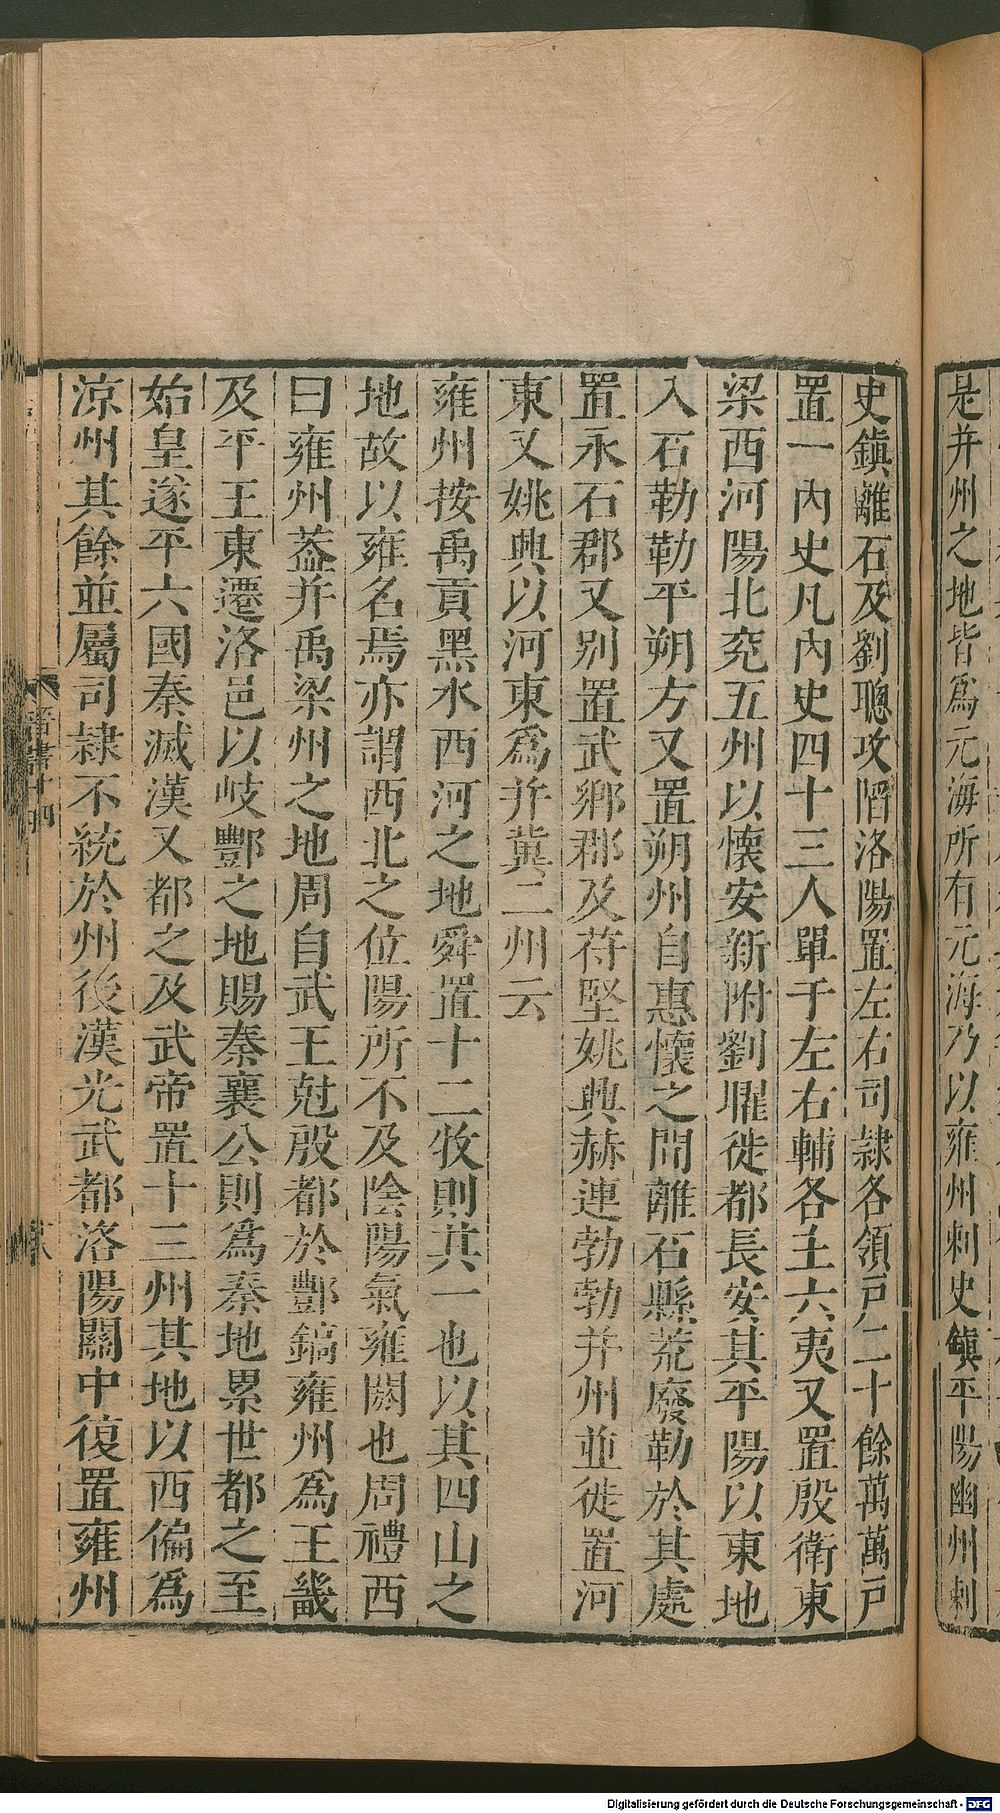 是并州之地皆爲元海所有元海乃以雍州刺史鎮平陽幽州刺
史鎮離石及劉聰攻䧟洛陽置左右司隷各領戸二十餘萬萬戸
置一內史凡內史四十三人單于左右輔各主六夷又置殷衛東
梁西河陽北兖五州以懷安新附劉曜徙都長安其平陽以東地
入石勒勒平朔方又置朔州自惠懷之間離石縣荒廢勒於其處
置永石郡又別置武鄉郡及苻堅姚興赫連勃勃并州並徙置河
東又姚興以河東爲并冀二州云
雍州按禹貢黑水西河之地舜置十二牧則其一也以其四山之
地故以雍名焉亦謂西北之位陽所不及陰陽氣雍閼也周禮西
曰雍州葢并禹梁州之地周自武王尅殷都於酆鎬雍州爲王畿
及平王東遷洛邑以岐酆之地賜秦襄公則爲秦地累世都之至
始皇遂平六國秦滅漢又都之及武帝置十三州其地以西偏爲
涼州其餘並屬司隷不統於州後漢光武都洛陽關中復置雍州
晉書十四
Digitalisierung gefördert durch die Deutsche Forschungsgemeinschaft - DFG